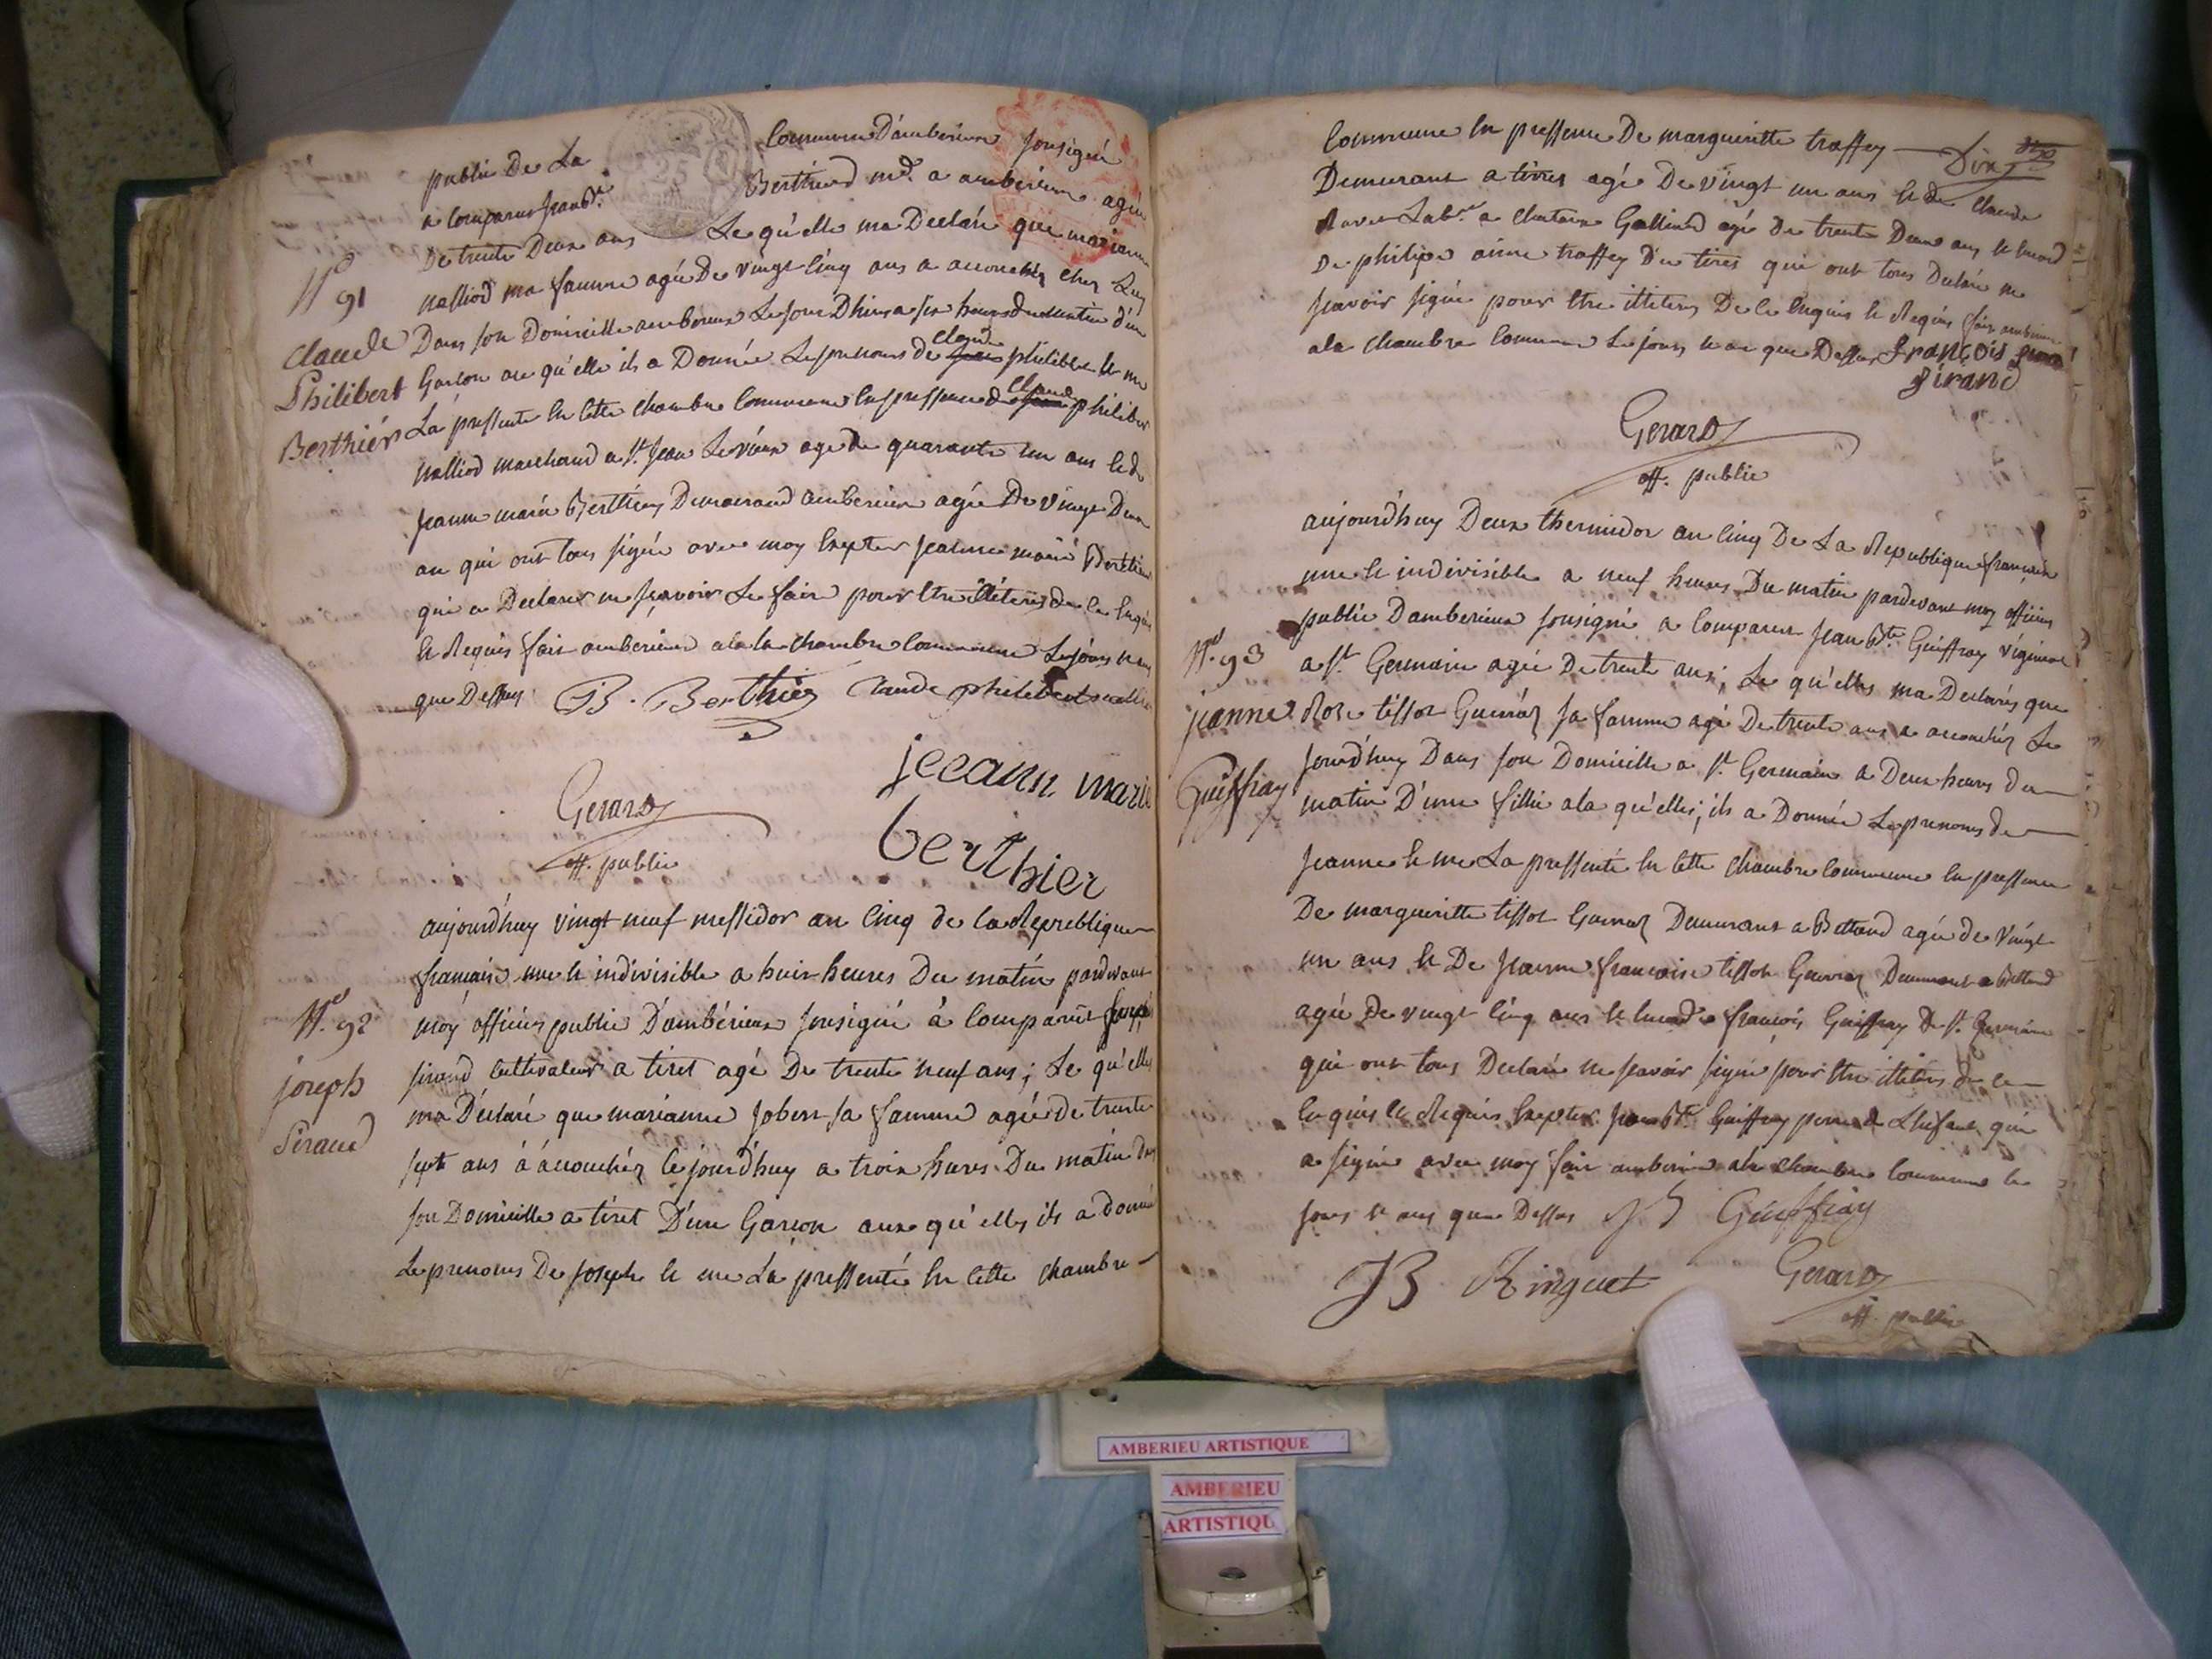 public De La commune D'amberieux sousigné
a comparus jean Bte Berthier md. a amberieux agée
De trente Deux ans Le qu'elle ma Declaré que marianne
nalliod ma famme agée De vingt cinq ans a accouchéz chez Luy
Dans son Domicille amberieux Le jour Dhier a six heures du matin d'un
Garson au qu'elle ils a Donnée Les prenoms de claude philibert et me
La pressenté en cette chambre commune en pressence de claude philibert
nalliod marchand a St. jean Le vieux age de quarante un ans et de
jeanne marie Berthier Demeurand amberieux agée De vingt Deux
an qui ont tous signée avec moy Excepter jeanne marie Berthier
qui a Declarer ne sçavoir Le faire pour Etre illiterés de ce Enquis
et Requis fait amberieux a la chambre commune Le jours et an
que Dessus B. Berthier Claude philibert nallio
N° 91
Claude
Philibert
Berthiér
jeeann. marie
berthier
Gerard
off. public
aujourd'huy vingt neuf messidor an cinq de la Republique
francaise une et indivisible a huit heures Du matin pardevant
moy officier public D'ambérieux sousigné à comparut joseph
sirand cultivateur a tiret agé De trente neuf ans; Le qu'elle
ma Déclaré que marianne jobert sa famme agée de trente
sept ans à accouchéz cejourd'huy a trois hures Du matin Dans
son Domicille a tiret D'un Garson aux qu'elle ils a donné
Le prenoms De joseph et me La pressenté En cette chambre
N° 92
joseph
Siraud
commune En pressence De margueritte traffey Dix
Demeurant a tiret agée De vingt un ans et de claude
Ravet Labr. a chateau Gaillard agé de trente Deux ans et
De philipe aimé traffey De tiret qui ont tous Declaré ne
sçavoir signé pour Etre illiteres De ce Enquis et Requis fait amberieux
a la chambre commune Le jours et an que Dessus François
Sirand
Gerard
off. public
aujourd'huy Deux thermidor an cinq De La Republique francaise
une et indivisible a neuf heures Du matin pardevant moy officier
public D'amberieux sousigné a comparus jean Bte Guiffray vigneron
a St. Germain agée De trente ans; Le qu'elle ma Declarés que
Rose tissot Guerraz sa famme agé De trente ans a accouchéz Ce
jourd'huy Dans son Domicille a St. Germain a Deux heures du
matin D'une fillie a la qu'elle; ils a Donnée Le prenoms de
jeanne et me La pressenté En cette chambre commune En pressence
De margueritte tissot Guerraz Demeurant a Bettand agée de vingt
un ans et De jeanne francoise tissot Guerraz Demeurant a Bettand
agée De vingt cinq ans et francois Guiffray De St. Germain
qui ont tous Declaré ne sçavoir signé pour Etre illiterés de ce
Enquis et Requis Excepter jean Bte. Guiffray perre de L'enfant qui
a signée avec moy fait amberieux a la chambre commune les
jours et an que Dessus J B Guiffray
N° 93
jeanne
Guiffray
JB Ringuet
Gerard
off. public
AMBERIEU ARTISTIQUE
AMBERIEU
ARTISTIQU